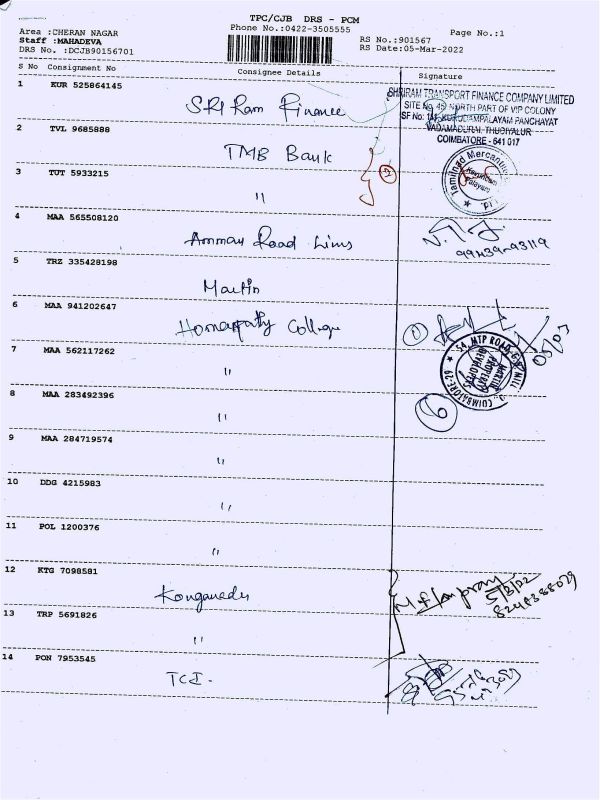 TPC/CJB DRS - PCM
Area :CHERAN NAGAR
Phone No.:0422-3505555
Page No.:1
Staff :MAHADEVA
RS No.:901567
DRS No. :DCJB90156701
RS Date:05-Mar-2022
S No Consignment No Consignee Details Signature
1 KUR 525864145
SRI Ram Finance
SHRIRAM TRANSPORT FINANCE COMPANY LIMITED
SITE No. 45, NORTH PART OF VIP COLONY
VADAMADURAI, THUDIYALUR
COIMBATORE - 641 017
2 TVL 9685888
TMB Bank
Tamilnad Mercantile
3 TUT 5933215
"
2
4 MAA 565508120
Amman Road Lines
99439-93119
5 TRZ 335428198
Martin
6 MAA 941202647
Homeopathy College
1
05/03
54, MTP ROAD, G.N. MILL
MARTIN
PROPERTY
DEVELOPERS
COIMBATORE
6
7 MAA 562117262
"
8 MAA 283492396
"
9 MAA 284719574
"
10 DDG 4215983
"
11 POL 1200376
"
12 KTG 7098581
Kongunadu
5/3/22
13 TRP 5691826
"
14 PON 7953545
TCI-